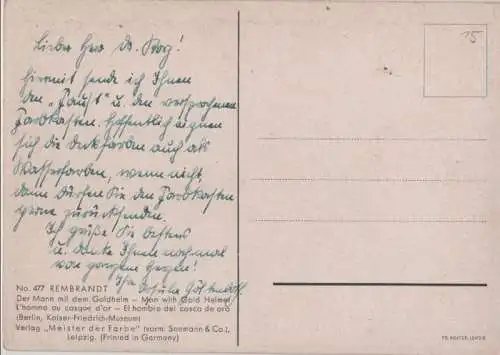 15
Lieber Herr Dr. Borg!
Hiermit sende ich Ihnen
den „Faust" u. den versprochenen
Farbkasten. Hoffentlich eignen
sich die Deckfarben auch als
Wasserfarben, wenn nicht,
dann dürfen Sie den Farbkasten
gerne zurücksenden.
Ich grüße Sie bestens
u. danke Ihnen nochmal
von ganzem Herzen!
Ihr
No. 477 REMBRANDT
Der Mann mit dem Goldhelm – Man with Gold Helmet
L'homme au casque d'or – El hombre del casco de oro
(Berlin, Kaiser-Friedrich-Museum)
Verlag „Meister der Farbe" (vorm. Seemann & Co.),
Leipzig. (Printed in Germany)